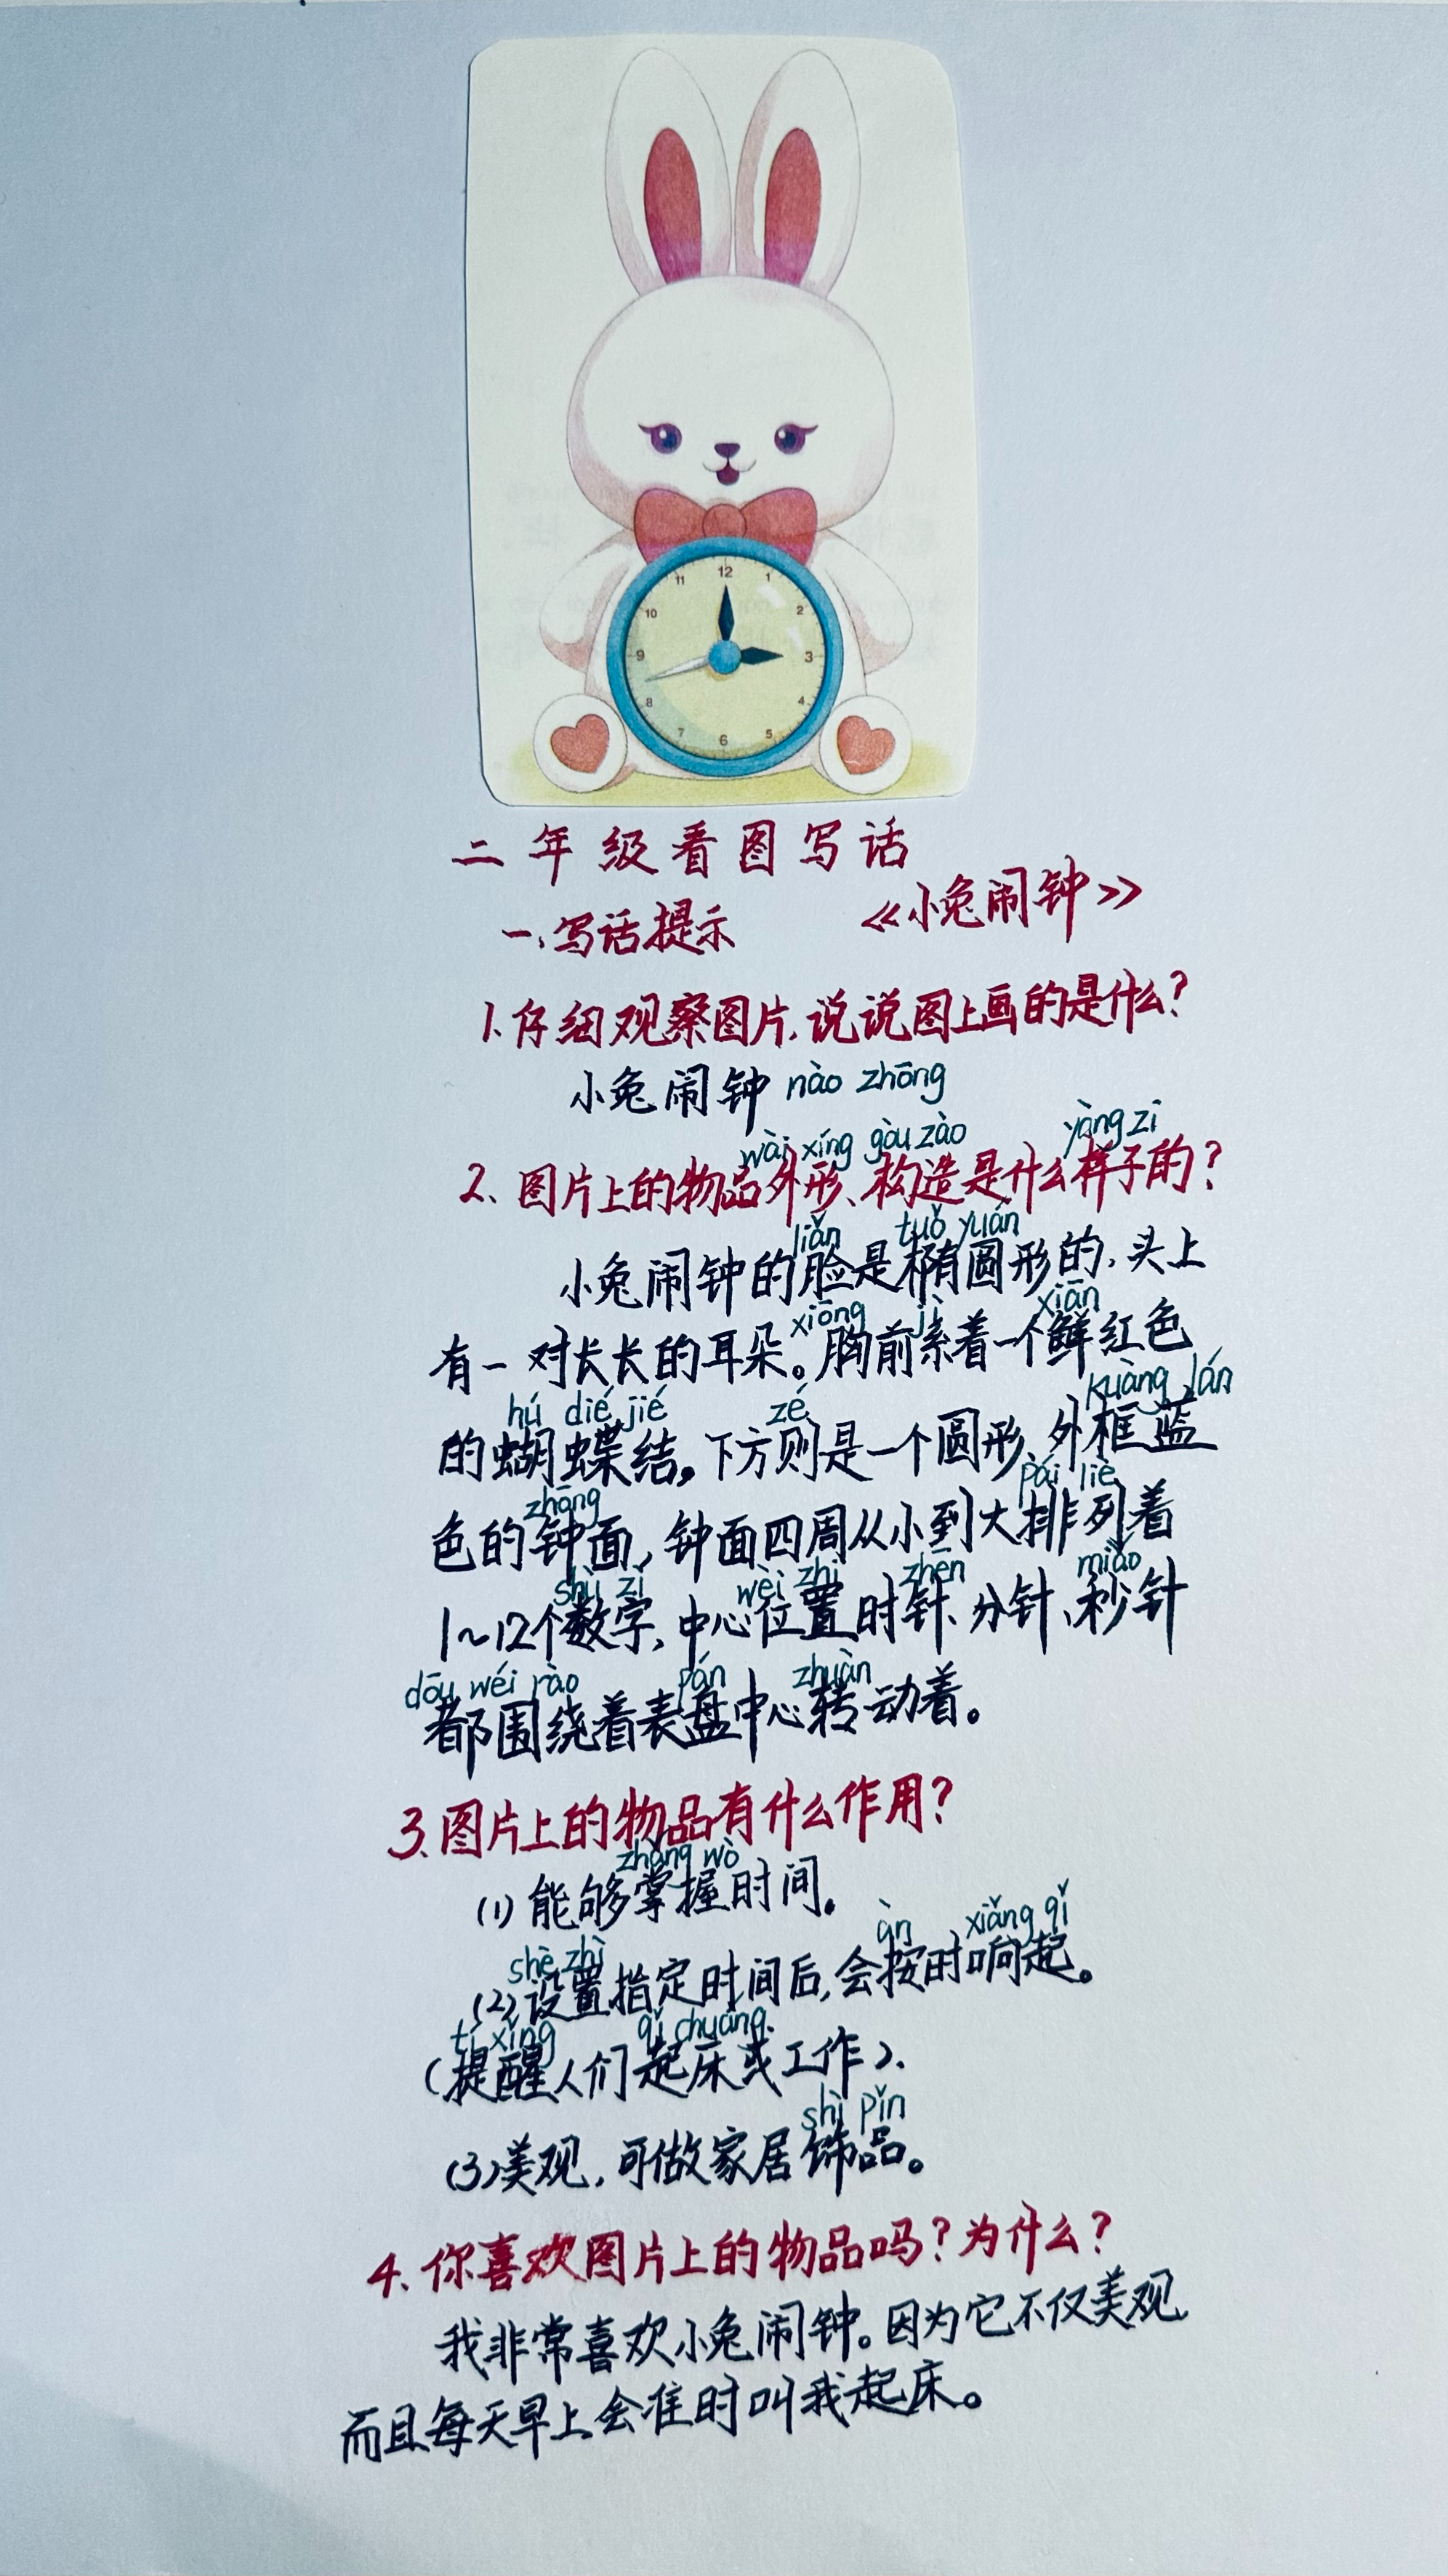 12
11
1
10
2
9
3
8
4
7
5
6
二年级看图写话
一、写话提示
《小兔闹钟》
1.仔细观察图片,说说图上画的是什么?
小兔闹钟 nào zhōng
wài xíng gòu zào yàng zi
2、图片上的物品外形、构造是什么样子的?
liǎn tuǒ yuán
小兔闹钟的脸是椭圆形的,头上
xiōng jì xiān
有一对长长的耳朵。胸前系着一个鲜红色
hú dié jié zé kuàng lán
的蝴蝶结。下方则是一个圆形、外框蓝
zhōng pái liè
色的钟面,钟面四周从小到大排列着
shù zì wèi zhi zhēn miǎo
1~12个数字,中心位置时针、分针、秒针
dōu wéi rào pán zhuàn
都围绕着表盘中心转动着。
3.图片上的物品有什么作用?
zhǎng wò
(1)能够掌握时间。
àn xiǎng qǐ
shè zhì
(2)设置指定时间后,会按时响起。
tí xǐng qǐ chuáng
(提醒人们起床或工作).
shì pǐn
(3)美观,可做家居饰品。
4.你喜欢图片上的物品吗?为什么?
我非常喜欢小兔闹钟。因为它不仅美观
而且每天早上会准时叫我起床。